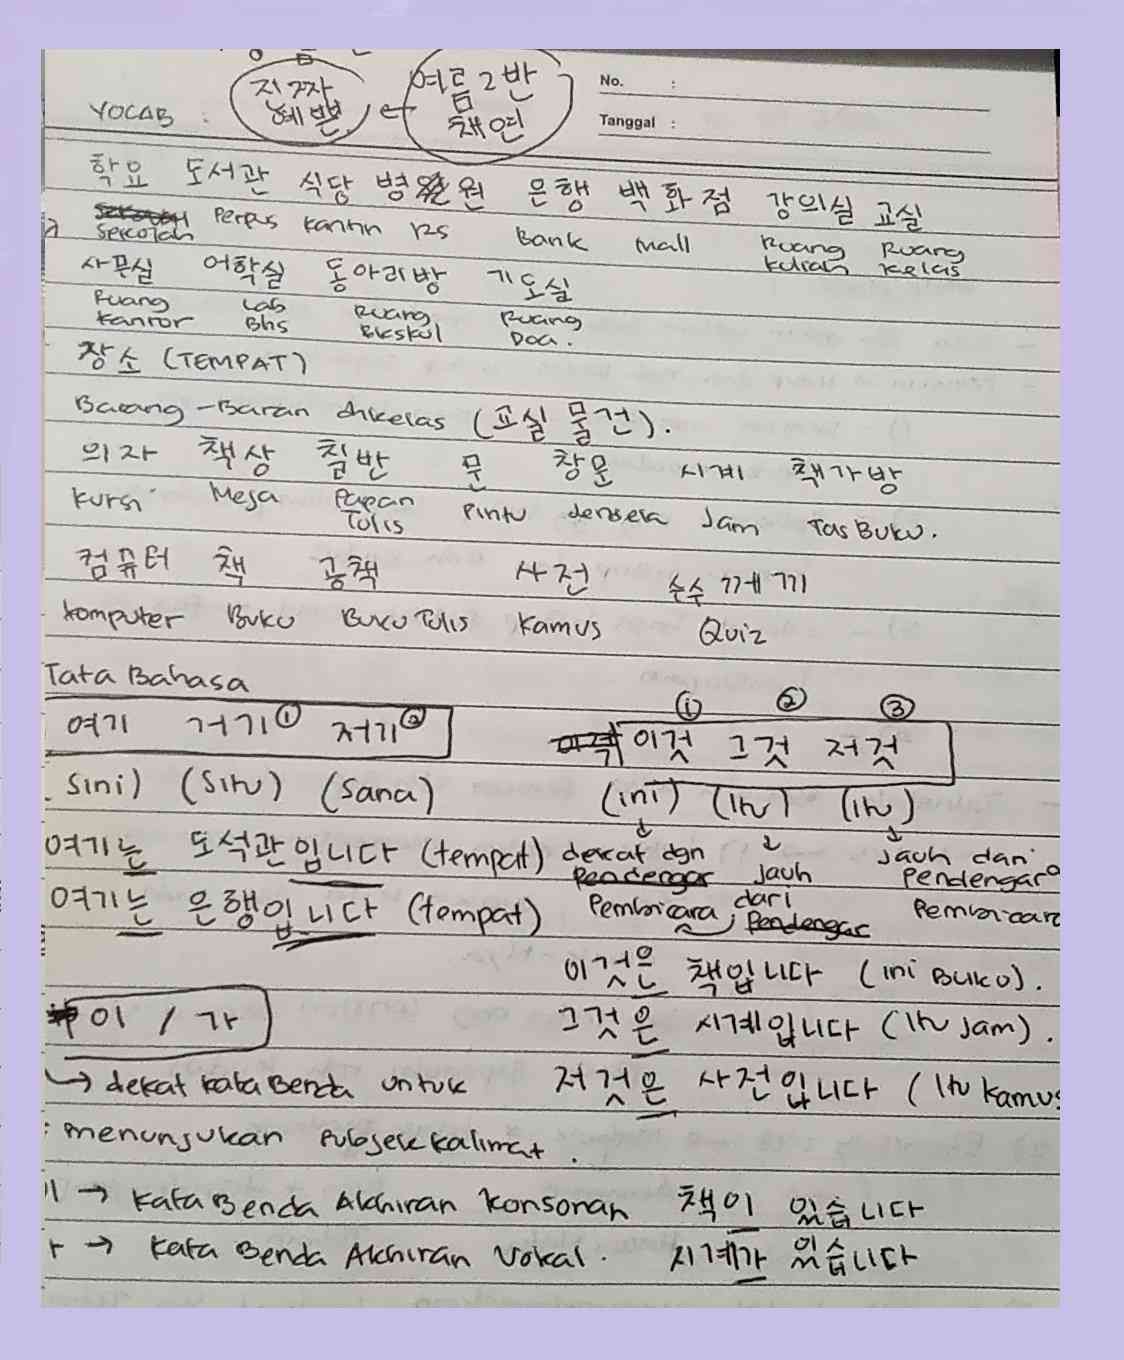 진짜 여름2반
VOCAB : 예쁜 채연
No. :
Tanggal :
학요 도서관 식당 병원 은행 백화점 강의실 교실
Sekolah Perpus kantin RS Bank mall Ruang kuliah Ruang kelas
사무실 어학실 동아리방 기도실
Ruang kantor Lab Bhs Ruang Ekskul Ruang Doa.
장소 (TEMPAT)
Barang-Baran dikelas (교실 물건).
의자 책상 칠반 문 창문 시계 책가방
kursi Meja Papan Tulis Pintu Jendela Jam Tas Buku.
컴퓨터 책 공책 사전 순수께끼
komputer Buku Buku Tulis Kamus Quiz
Tata Bahasa
여기 거기① 저기②
sini) (situ) (sana)
① ② ③
이것 그것 저것
(ini) (itu) (itu)
여기는 도석관입니다 (tempat)
여기는 은행입니다 (tempat)
dekat dgn Pembicara
jauh dari
Jauh dari Pendengar
Pembicara
이것은 책입니다 (ini Buku).
이 / 가
그것은 시계입니다 (Itu Jam).
→ dekat kata Benda untuk
저것은 사전입니다 (Itu kamus
menunjukan subjek kalimat.
→ Kata Benda Akhiran Konsonan 책이 있습니다
→ Kata Benda Akhiran Vokal. 시계가 있습니다